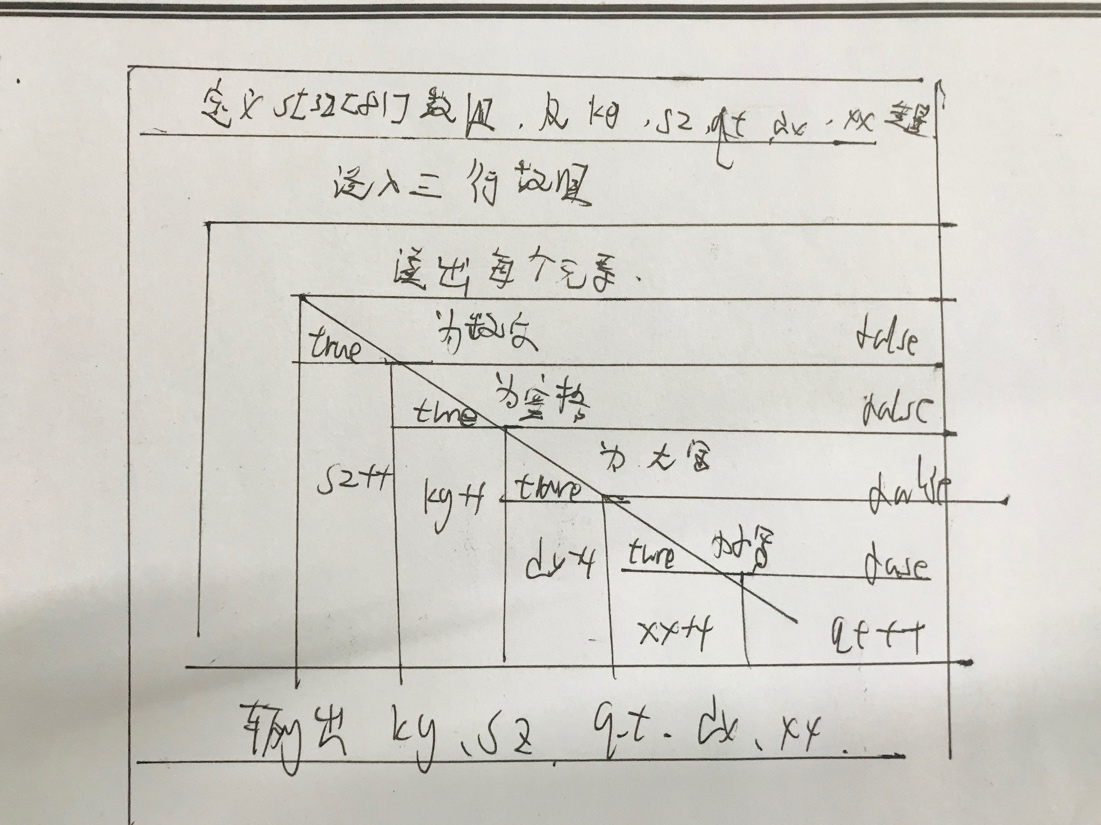 定义 s[3][81] 数组，及 kg，sz，qt，dx，xx 变量
读入三行数组
读出每个元素.
true 为数字 false
true 为空格 false
sz++ 为大写
kg++ true false
dx++ true 为小写 false
xx++ qt++
输出 kg、sz qt. dx、xx.